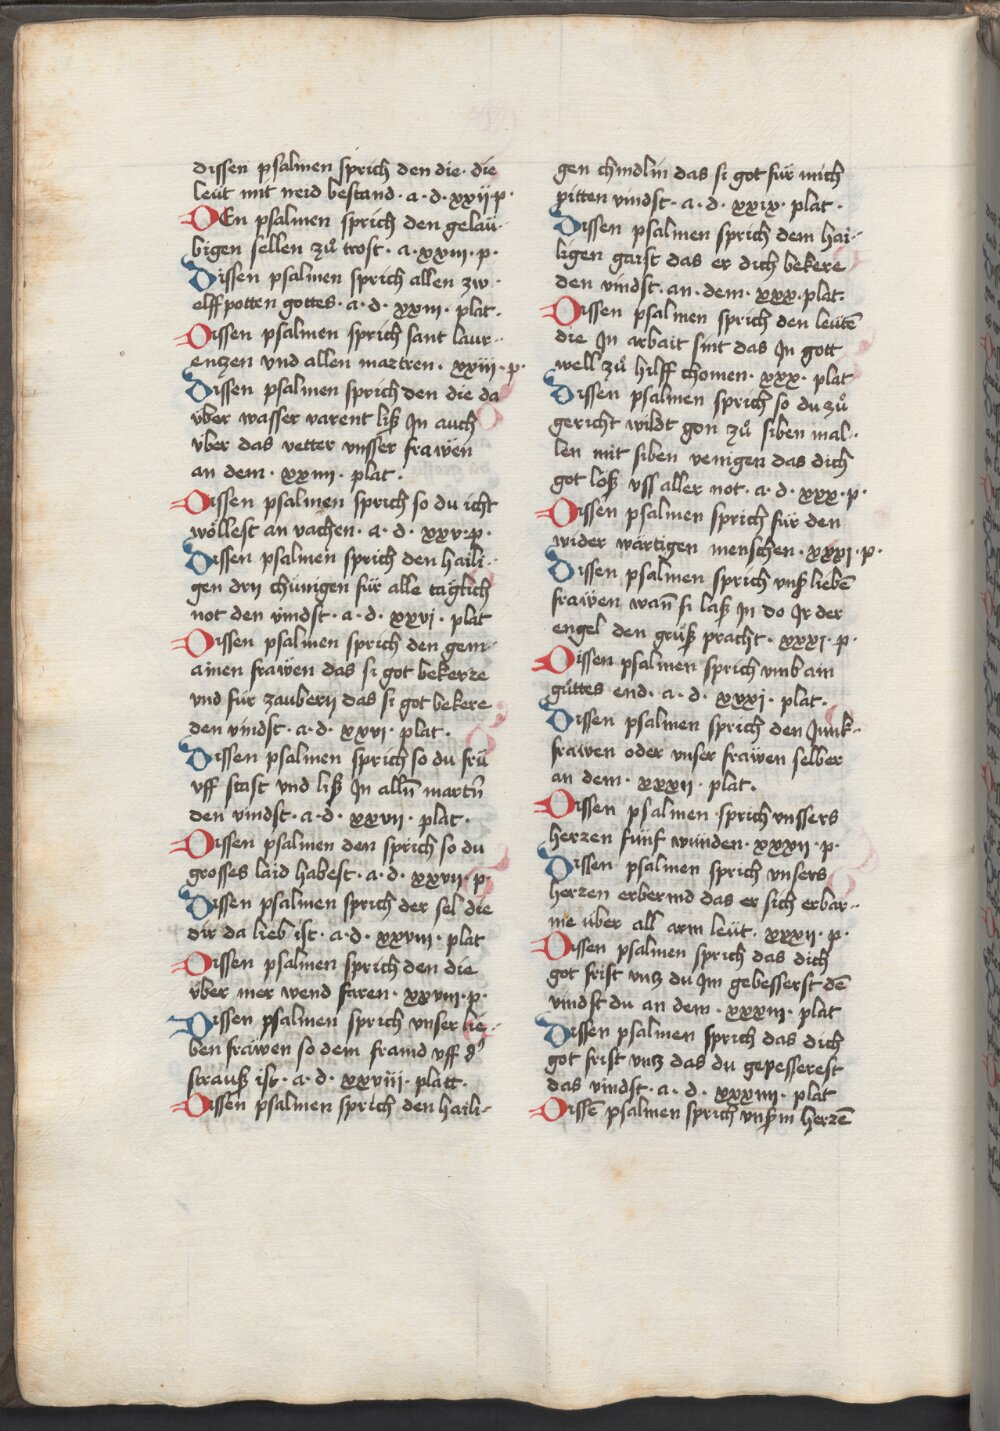 dissen psalmen sprich den die · die
leüt mit neid bestand · a · d · xxii · p ·
DEn psalmen sprich den geläü-
bigen sellen zů trost · a · xxiii · p ·
Dissen psalmen sprich allen zw-
elff potten gottes · a · d · xxiii · plat ·
Dissen psalmen sprich sant laur-
enzen vnd allen martren · xxiiii · p ·
Dissen psalmen sprich den die da
über wasser varent liß In auch
über das vetter vnsser frawen
an dem · xxiiii · plat ·
Dissen psalmen sprich so du icht
wöllest an vachen · a · d · xxv · p ·
Dissen psalmen sprich den haili-
gen drij chünigen für alle täglich
not den vindst · a · d · xxvi · plat
Dissen psalmen sprich den gem-
ainen frawen das si got bekerre
vnd für zauberij das si got bekere
den vindst · a · d · xxvi · plat ·
Dissen psalmen sprich so du frü
vff stast vnd liß In alln̄ martn̄
den vindst · a · d · xxvii · plat ·
Dissen psalmen den sprich so du
grosses laid habest · a · d · xxvii · p ·
Dissen psalmen sprich der sel die
dir da lieb ist · a · d · xxviii · plat
Dissen psalmen sprich den die
über mer wend faren · xxviii · p ·
Dissen psalmen sprich vnser lie-
ben frawen so dem framd vff d'
strauß ist · a · d · xxviiii · platt ·
Dissen psalmen sprich den haili-
gen chindlin das si got für mich
pitten vindst · a · d · xxix · plat ·
Dissen psalmen sprich dem hai-
ligen gaist das er dich bekere
den vindst · an · dem · xxx · plat ·
Dissen psalmen sprich den leutē
die In arbait sint das In gott
well zů hilff chomen · xxx · plat
Dissen psalmen sprich so du zů
gericht wildt gon zů siben mal-
len mit siben venigen das dich
got löß vss aller not · a · d · xxx · p ·
Dissen psalmen sprich für den
wider wärtigen menschen · xxxi · p ·
Dissen psalmen sprich vnß liebē
frawen wan̄ si laß In do Ir der
engel den grůß pracht · xxxi · p ·
Dissen psalmen sprich vmb ain
gůttes end · a · d · xxxi · plat ·
Dissen psalmen sprich den Junk-
frawen oder vnser frawen selber
an dem · xxxii · plat ·
Dissen psalmen sprich vnssers
herzen fünf wunden · xxxii · p ·
Dissen psalmen sprich vnsers
herzen erbermd das er sich erbar-
me über all arm leüt · xxxii · p ·
Dissen psalmen sprich das dich
got frist vnz du Im gebesserst dē
vindst du an dem · xxxiii · plat
Dissen psalmen sprich das dich
got frist vnz das du gepesserest
das vindst · a · d · xxxiiii · plat
Dissē psalmen sprich vnßm herzē